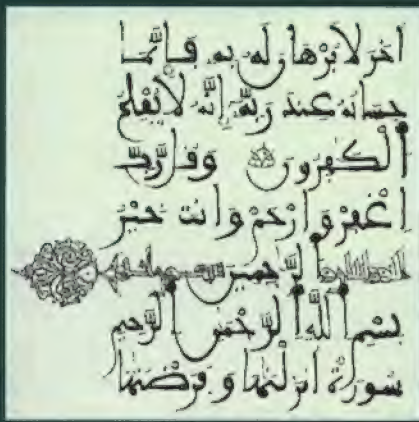 اخر لا برهان له به فانما
حسابه عند ربه انه لا يفلح
الكفرون وقل رب
اغفر وارحم وانت خير
الرحمين
بسم الله الرحمن الرحيم
سورة انزلنها وفرضنها